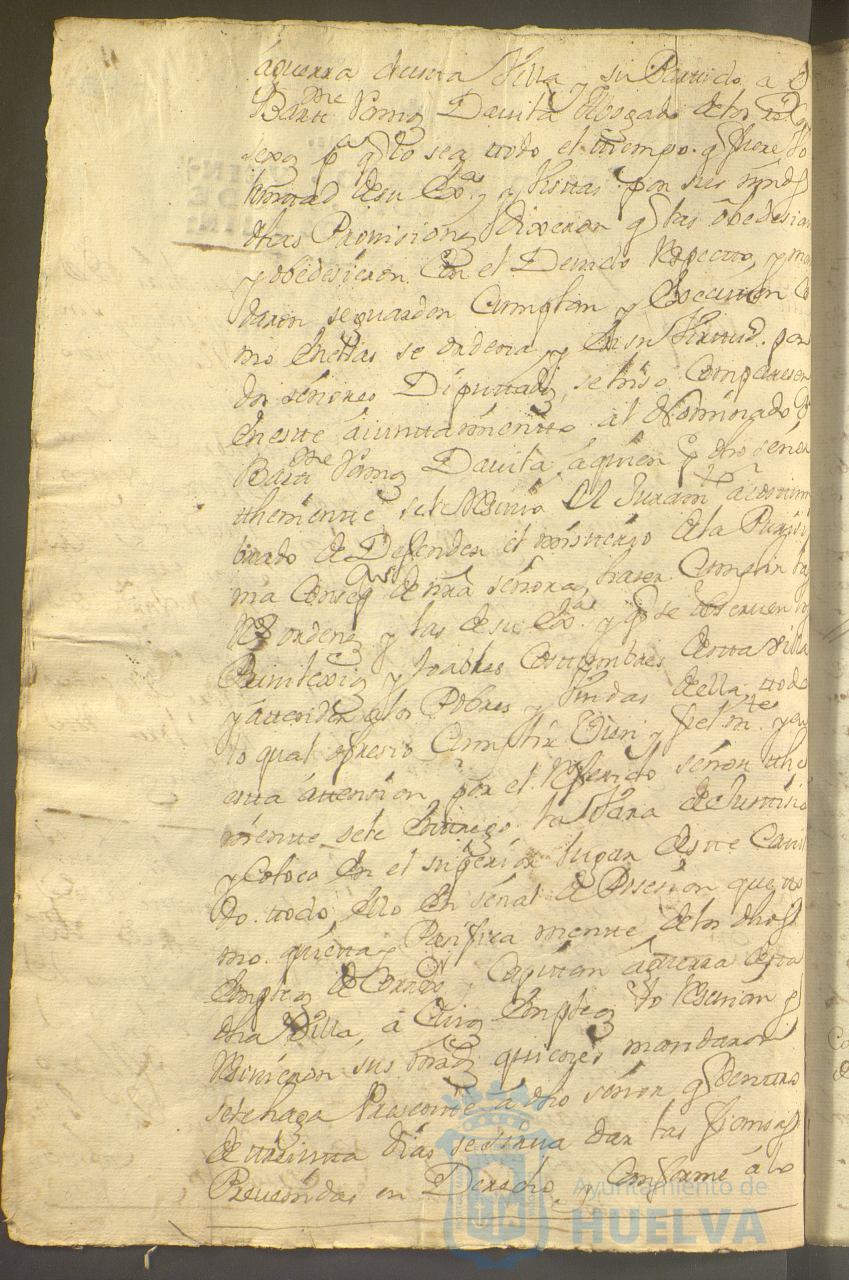 aguerra de esta Villa y su Partido a Dn
Barte Ponz Davila Abogado de los Rs Con
sexos pa qe lo sea todo el tiempo qe fuere Vo
luntad de su Exa y Vistas por sus mrds
dhas Provisiones dixeron qe las obedesian
y obedesieron Con el Devido Respecto, y man
daron se guarden Cumplan y Executen Co
mo En ellas se ordena, y En su Virtud por
dos señores Diputados, se hiso Compareser
En este aiuntamiento al Nominado Dn
Barte Ponz Davila, a quien Por dho señor
theniente, se le Resivio El Juramto acostum
brado de Defender el misterio de la Purissi
ma Consepon de nra señora, haser Cumplir las
Rs ordenes y las de su Exa y qe se observen los
Privilexios y loables Costumbres de esta Villa
y atender a los Pobres y Viudas della, todo
lo qual ofresio Cumplir Vien y fielmte y en
esta attension por el Referido señor the
niente se le Entrego la Vara de Justisia
y Coloco En el superior lugar de este Cavil
do todo Ello En señal de Posesion que to
mo quieta y Pasifica mente de los dhos
Empleos de Corexor y Capitan aguerra de esta
dha Villa, a Cuios Empleos lo Resivian y
Resivieron sus mrds quienes mandaron
se le haga Presente a dho señor qe dentro
de treinta dias se sirva dar las fiansas
Prevenidas en Derecho, y Conforme a lo
Ayuntamiento de
HUELVA